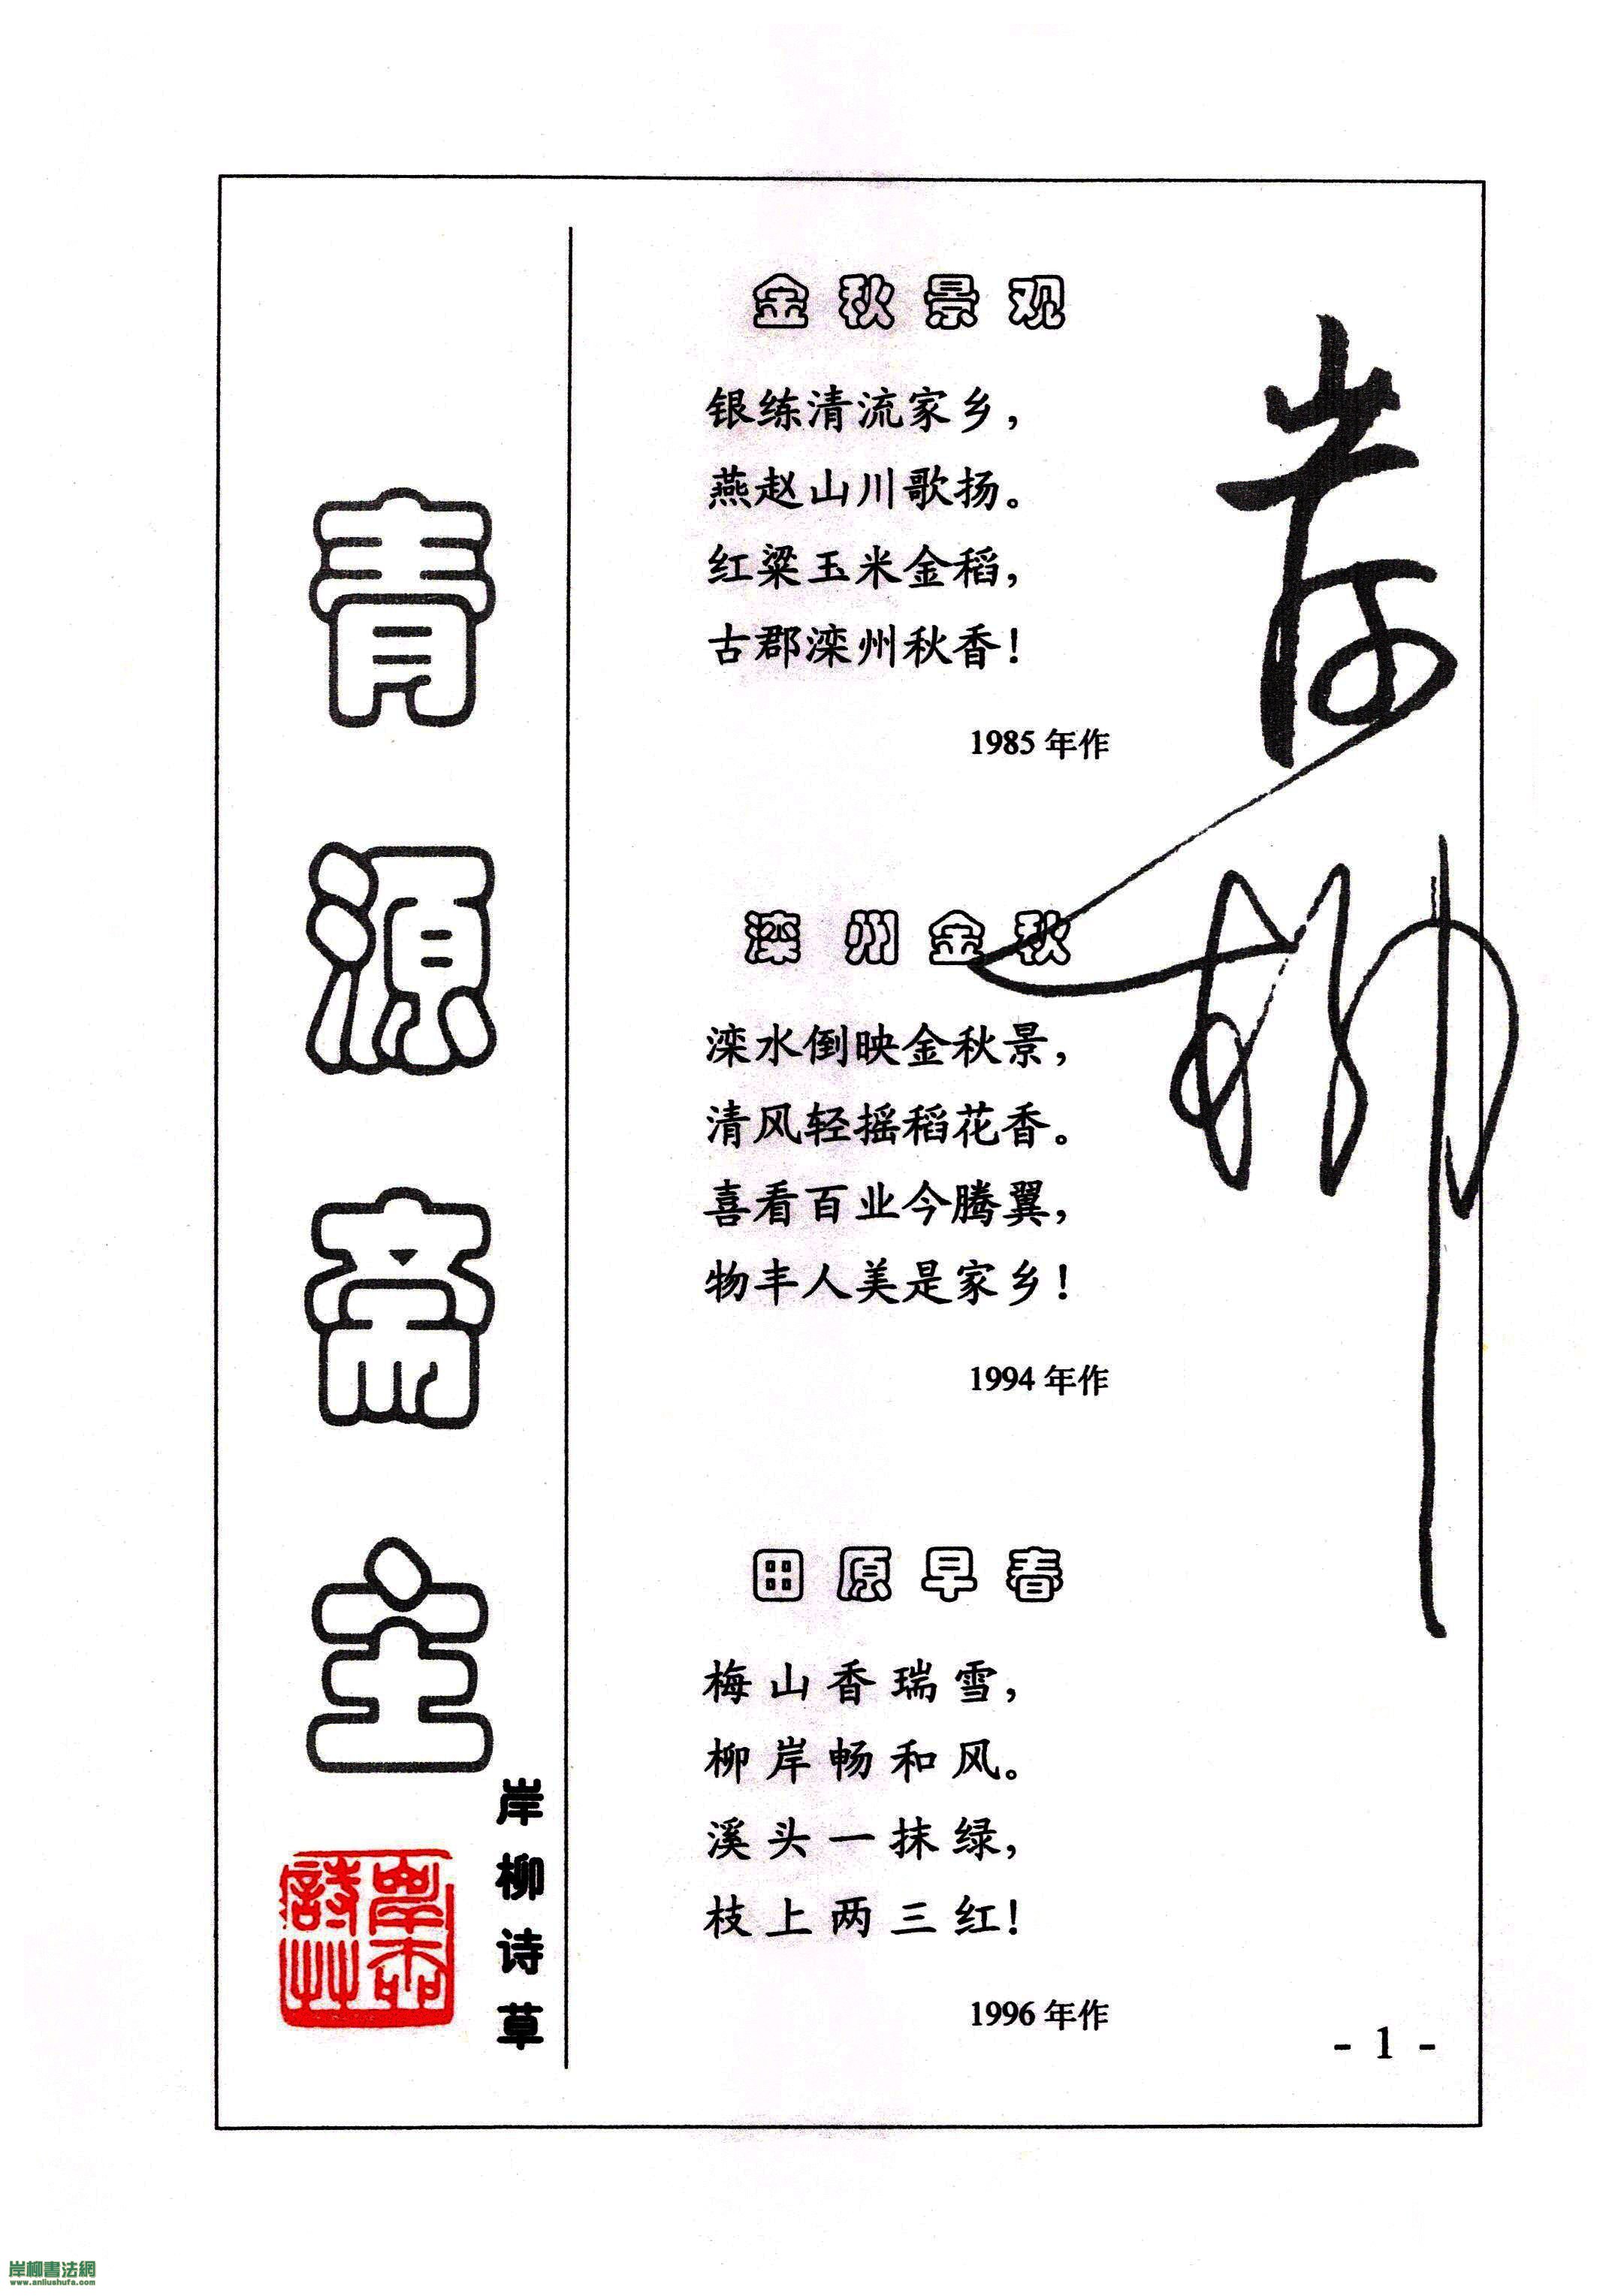 青源斋主
岸柳诗草
岸柳詩艸
金秋景观
银练清流家乡，
燕赵山川歌扬。
红粱玉米金稻，
古郡滦州秋香！
1985 年作
滦州金秋
滦水倒映金秋景，
清风轻摇稻花香。
喜看百业今腾翼，
物丰人美是家乡！
1994 年作
田原早春
梅山香瑞雪，
柳岸畅和风。
溪头一抹绿，
枝上两三红！
1996 年作
岸柳
- 1 -
岸柳書法網
www.anliushufa.com